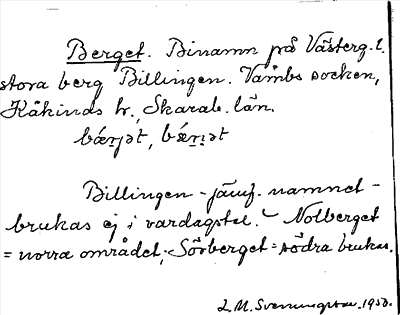 Berget. Binamn på Västerg:l.
stora berg Billingen. Vämbs socken,
Kåkinds hr, Skarab. län.
bǽrjət, bǽrıət
Billingen - jämf. namnet -
brukas ej i vardagstal. Nolberget
= norra området; Sörberget = södra brukas.
L.M. Svenungsson. 1950.